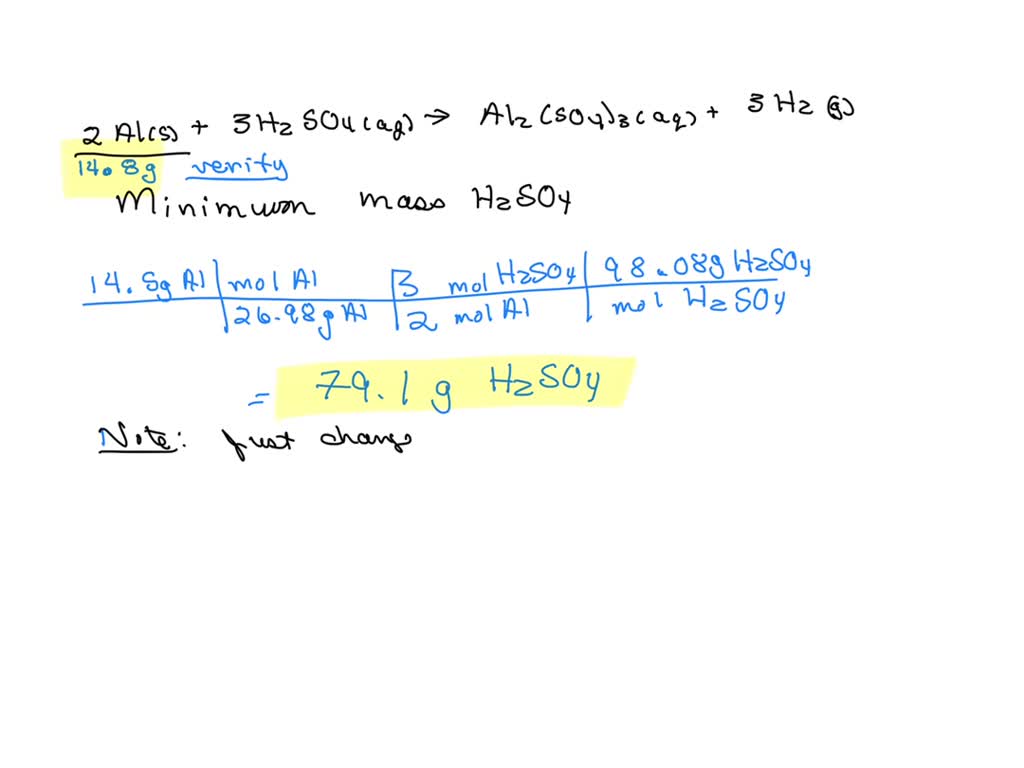 2 Al(s) + 3H₂SO₄(aq) → Al₂(SO₄)₃(aq) + 3H₂(g)
14.8g verity
Minimum mass H₂SO₄
14.5g Al | mol Al | 3 mol H₂SO₄ | 98.08g H₂SO₄
26.98g Al | 2 mol Al | mol H₂SO₄
= 79.1 g H₂SO₄
Note: Just change